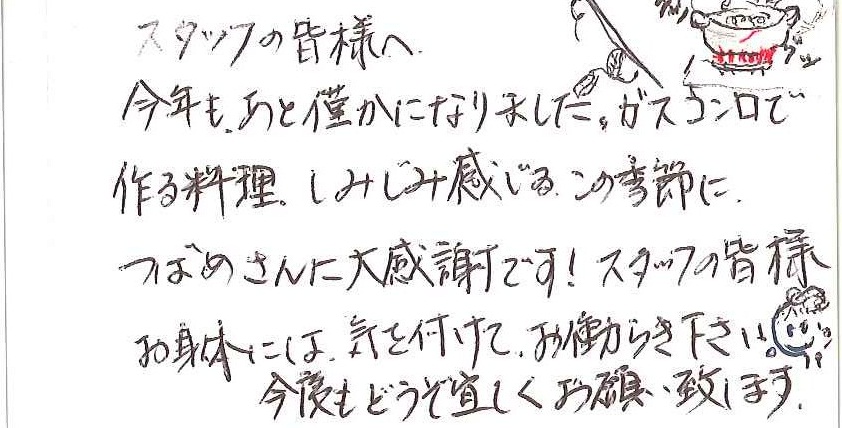 スタッフの皆様へ
グツ
グツ
今年も、あと僅かになりました。ガスコンロで
作る料理、しみじみ感じるこの季節に、
つばめさんに大感謝です！スタッフの皆様
お身体には、気を付けて、お働らき下さい。
今後もどうぞ宜しくお願い致します。